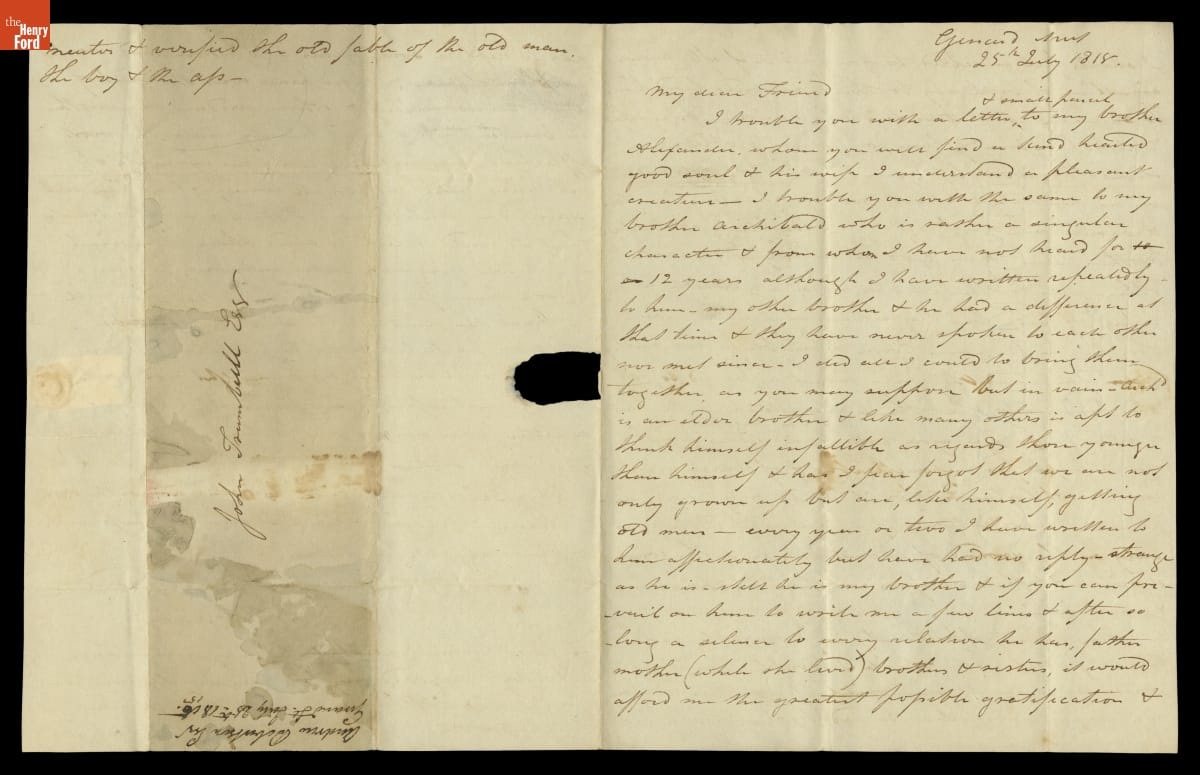 the
Henry
Ford
mentor & verified the old fable of the old man,
the boy & the ass –
John Trumbull Esqr.
Gerrard Street
25th July 1815.
My dear Friend
& small parcel
I trouble you with a letter, to my brother
Alexander, whom you will find a kind hearted
good soul & his wife I understand a pleasant
creature – I trouble you with the same to my
brother Archibald who is rather a singular
character & from whom I have not heard for
12 years although I have written repeatedly
to him – my other brother & he had a difference at
that time & they have never spoken to each other
nor met since – I did all I could to bring them
together, as you may suppose but in vain – Archd
is an elder brother & like many others is apt to
think himself infallible as regards those younger
than himself & has I fear forgot that we are not
only grown up but are, like himself, getting
old men – every year or two I have written to
him affectionately but have had no reply – strange
as he is – still he is my brother & if you can pre-
-vail on him to write me a few lines & after so
-long a silence to every relation he has, father
mother (while she lived) brothers & sisters, it would
afford me the greatest possible gratification &
Andrew Robertson Esqr
Gerrard St. July 25th 1815.